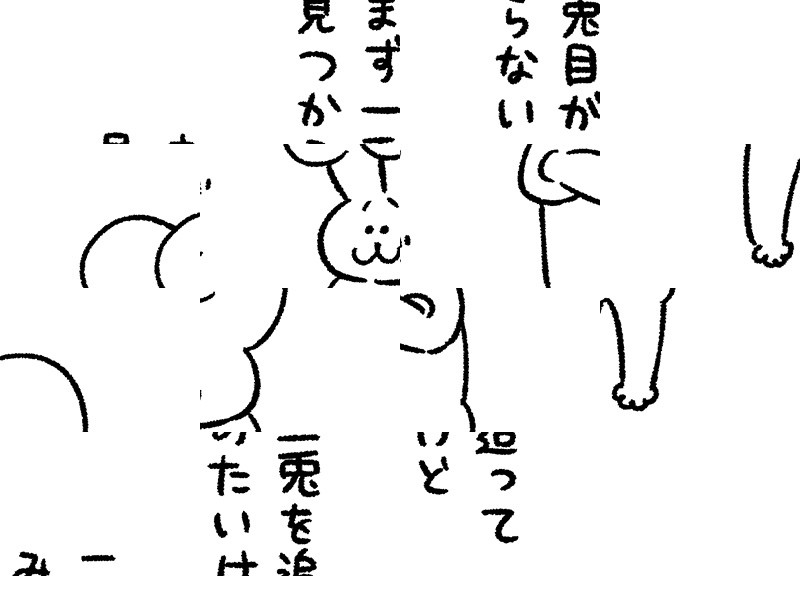 一兎を追って
みたいけど
まず一兎目が
見つからない